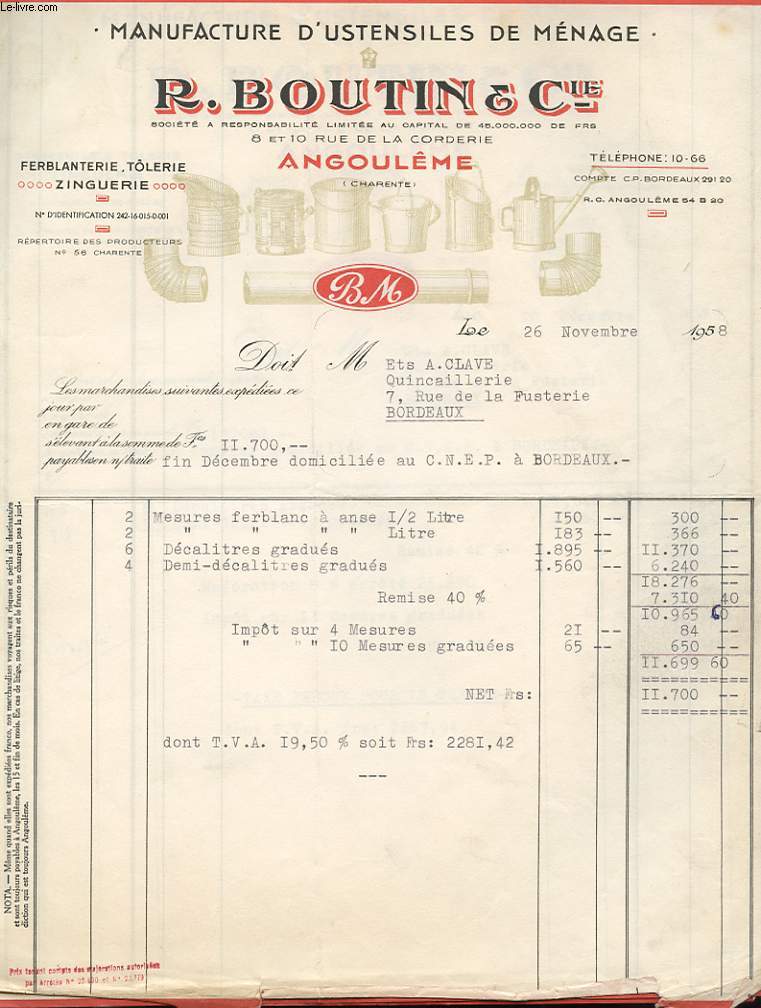 Le-livre.com
· MANUFACTURE D'USTENSILES DE MÉNAGE ·
R. BOUTIN & CIE
SOCIÉTÉ A RESPONSABILITÉ LIMITÉE AU CAPITAL DE 45.000.000 DE FRS
8 ET 10 RUE DE LA CORDERIE
ANGOULÊME
(CHARENTE)
FERBLANTERIE, TÔLERIE
ZINGUERIE
N° D'IDENTIFICATION 242-16-015-0-001
RÉPERTOIRE DES PRODUCTEURS
N° 56 CHARENTE
TÉLÉPHONE: 10-66
COMPTE C.P. BORDEAUX 291 20
R.C. ANGOULÊME 54 B 20
BM
Le 26 Novembre 1958
Doit M Ets A.CLAVE
Quincaillerie
7, Rue de la Fusterie
BORDEAUX
Les marchandises suivantes expédiées ce
jour par
en gare de
s'élevant à la somme de Frs II.700,--
payables en n/traite fin Décembre domiciliée au C.N.E.P. à BORDEAUX.-
2 Mesures ferblanc à anse I/2 Litre I50 -- 300 --
2 " " " " Litre I83 -- 366 --
6 Décalitres gradués I.895 -- II.370 --
4 Demi-décalitres gradués I.560 -- 6.240 --
I8.276 --
Remise 40 % 7.3I0 40
I0.965 60
Impôt sur 4 Mesures 2I -- 84 --
" " " I0 Mesures graduées 65 -- 650 --
II.699 60
NET Frs: II.700 --
dont T.V.A. I9,50 % soit Frs: 228I,42
---
NOTA. — Même quand elles sont expédiées franco, nos marchandises voyagent aux risques et périls du destinataire
et sont toujours payables à Angoulême, les 15 et fin de mois. En cas de litige, nos traites et le franco ne changent pas la juri-
diction qui est toujours Angoulême.
Prix tenant compte des majorations autorisées
par Arrêtés N°